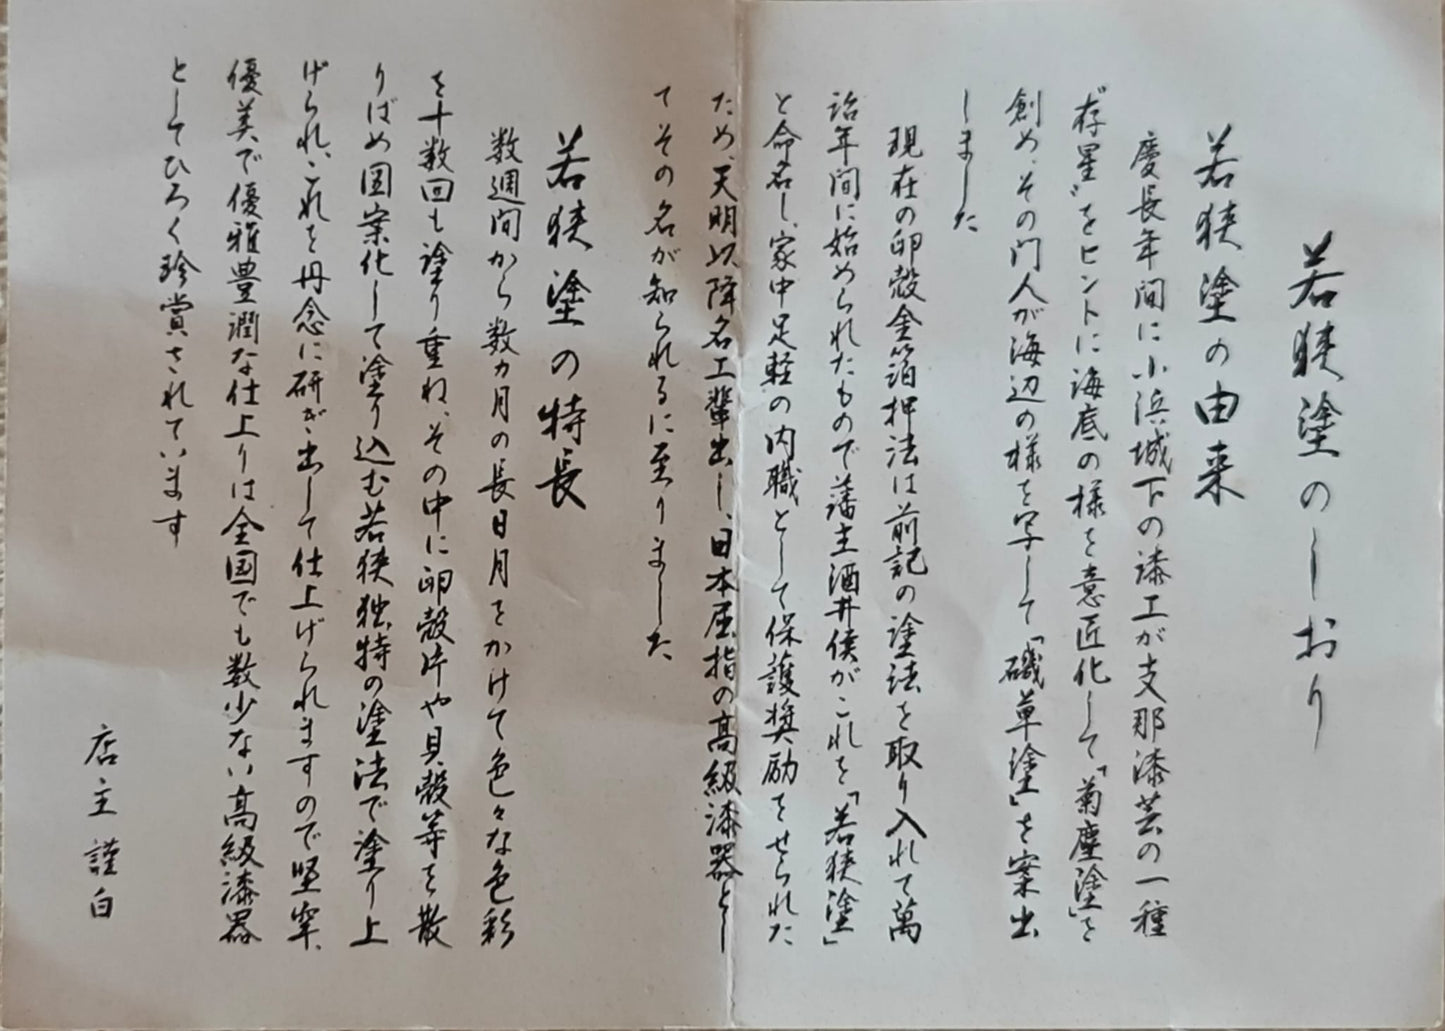 若狭塗のしおり
若狭塗の由来
慶長年間に小浜城下の漆工が支那漆芸の一種
“存星”をヒントに海底の様を意匠化して「菊塵塗」を
創め、その門人が海辺の様を写して「磯草塗」を案出
しました
現在の卵殻金箔押法は前記の塗法を取り入れて萬
治年間に始められたもので藩主酒井侯がこれを「若狭塗」
と命名し、家中足軽の内職として保護奨励をせられた
ため、天明以降名工輩出し、日本屈指の高級漆器とし
てその名が知られるに至りました
若狭塗の特長
数週間から数ヵ月の長日月をかけて色々な色彩
を十数回も塗り重ね、その中に卵殻片や貝殻等を散
りばめ図案化して塗り込む若狭独特の塗法で塗り上
げられ、これを丹念に研ぎ出して仕上げられますので堅牢、
優美で優雅豊潤な仕上りは全国でも数少ない高級漆器
としてひろく珍賞されています
店主謹白